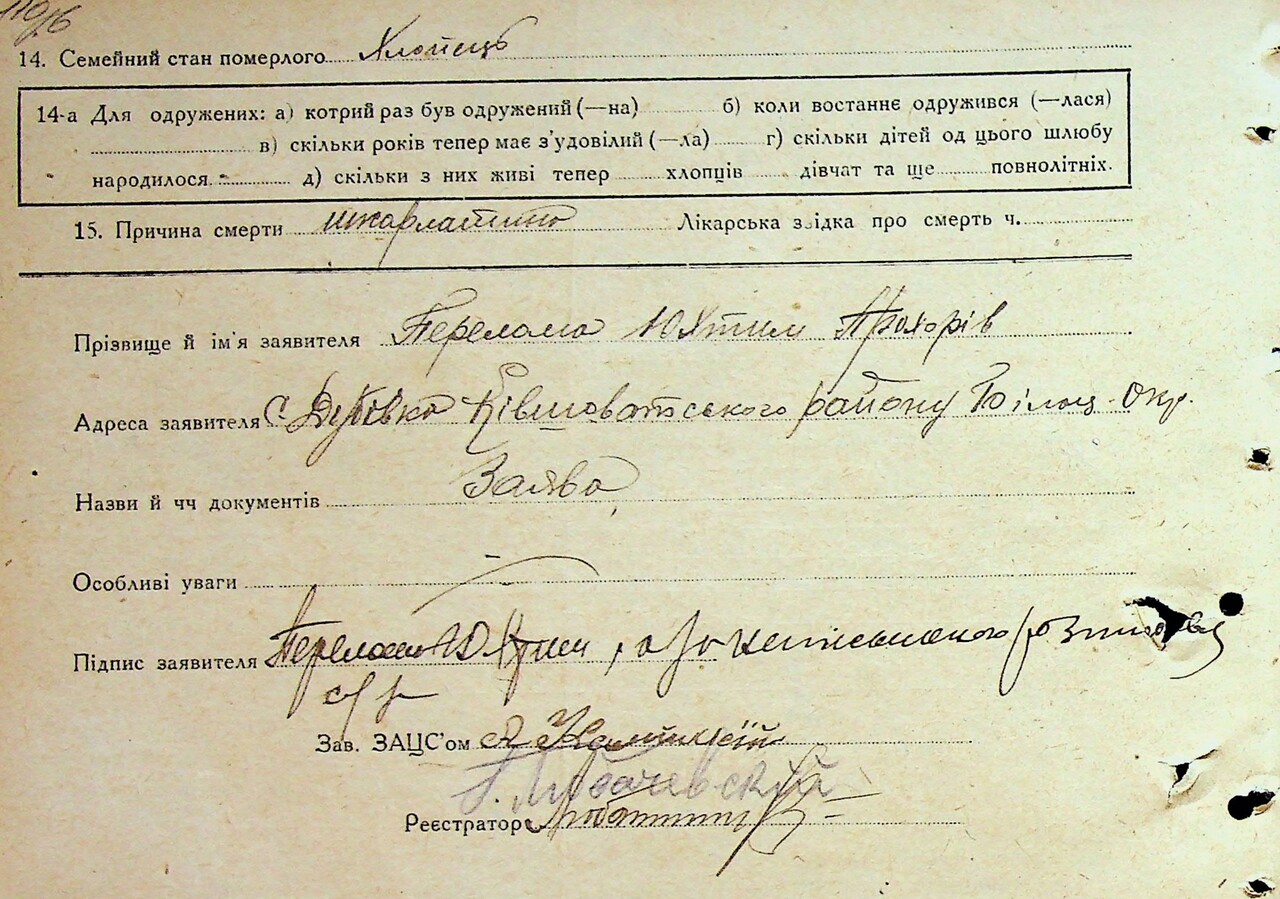 14. Семейний стан померлого Хлопець
14-а Для одружених: а) котрий раз був одружений (—на) б) коли востаннє одружився (—лася)
в) скільки років тепер має з'удовілий (—ла) г) скільки дітей од цього шлюбу
народилося д) скільки з них живі тепер хлопців дівчат та ще повнолітніх.
15. Причина смерти шкарлатина Лікарська звідка про смерть ч.
Прізвище й ім'я заявителя Перелома Юхтим Прохорів
Адреса заявителя с. Дубівка Ківшоватського району Білоц. Окр.
Назви й чч документів Заява
Особливі уваги
Підпис заявителя Перелома Юхтим, а за неписьменого
Зав. ЗАЦС'ом
Реєстратор